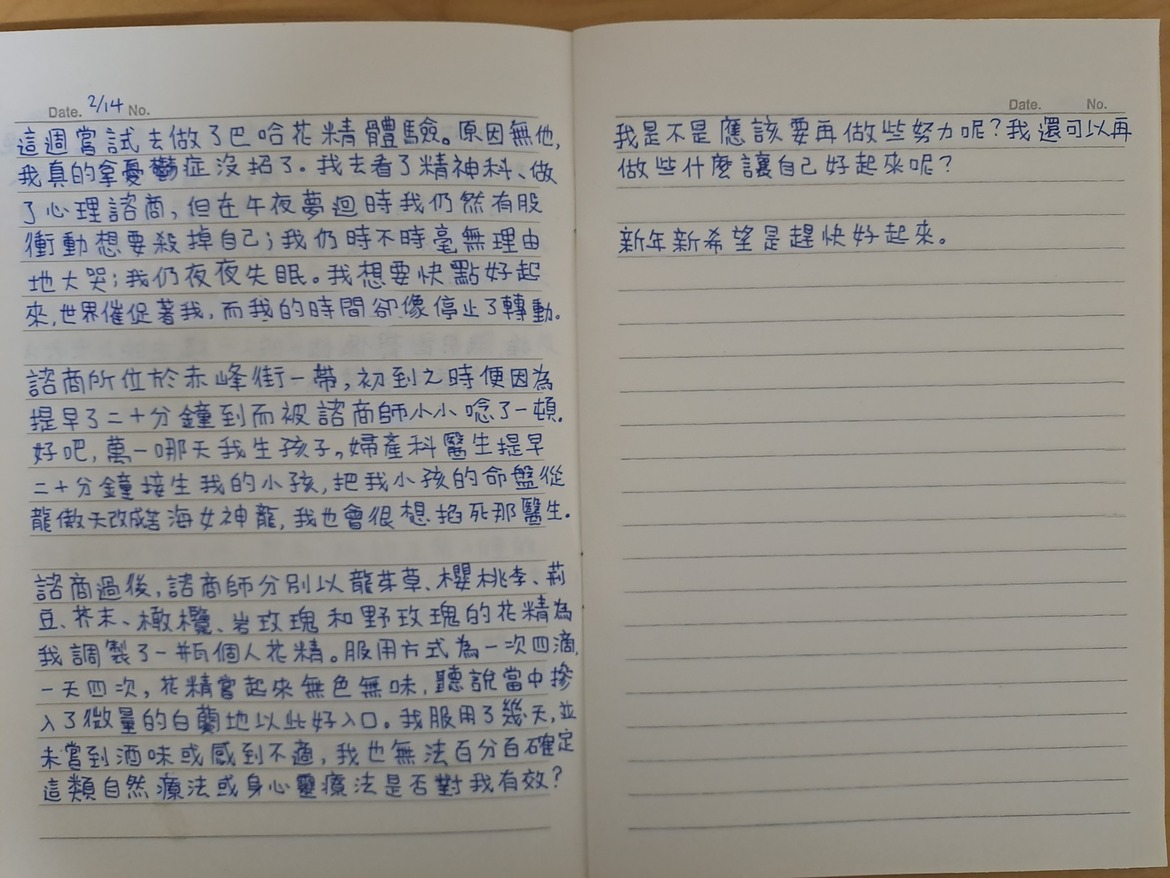 Date. 2/14 No.
這週嘗試去做了巴哈花精體驗。原因無他,
我真的拿憂鬱症沒招了。我去看了精神科、做
了心理諮商,但在午夜夢迴時我仍然有股
衝動想要殺掉自己;我仍時不時毫無理由
地大哭;我仍夜夜失眠。我想要快點好起
來,世界催促著我,而我的時間卻像停止了轉動。
諮商所位於赤峰街一帶,初到之時便因為
提早了二十分鐘到而被諮商師小小唸了一頓。
好吧,萬一哪天我生孩子,婦產科醫生提早
二十分鐘接生我的小孩,把我小孩的命盤從
龍傲天改成苦海女神龍,我也會很想掐死那醫生。
諮商過後,諮商師分別以龍芽草、櫻桃李、菊
豆、芥末、橄欖、岩玫瑰和野玫瑰的花精為
我調製了一瓶個人花精。服用方式為一次四滴,
一天四次,花精嘗起來無色無味,聽說當中摻
入了微量的白蘭地以此好入口。我服用了幾天,並
未嘗到酒味或感到不適,我也無法百分百確定
這類自然療法或身心靈療法是否對我有效?
Date. No.
我是不是應該要再做些努力呢?我還可以再
做些什麼讓自己好起來呢?
新年新希望是趕快好起來。